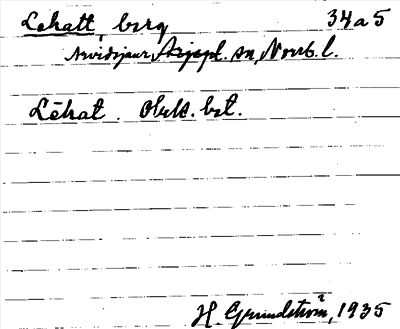 Lehatt, berg 34a5
Arvidsjaur, Arjepl. sn, Norrb. l.
Lēhat. Obek. bet.
H. Grundström, 1935